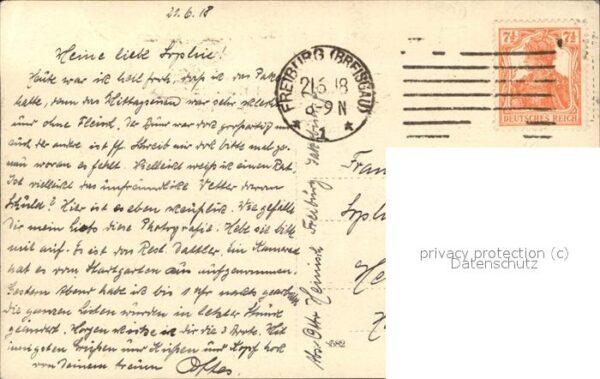 21.6.18
Meine liebe Sophie!
Heute war ich sehr froh, daß ich das Paket
hatte, denn das Mittagessen war sehr schlecht
und ohne Fleisch. Der war doch großartig und
auch der andere ist Schreib mir doch bitte mal ge-
nau woran es fehlt. Vielleicht weiß ich einen Rat.
Ist vielleicht das unfreundliche Wetter daran
Schuld? Hier ist es eben Wie gefällt
Dir mein Liebs diese Photografie. Hebe sie bitte
mit auf. Es ist das Rest. Dattler. Ein Kamerad
hat es vom Stadtgarten aus aufgenommen.
Gestern Abend habe ich bis 1 Uhr nachts gearbeitet
die ganzen Listen wurden in letzter Stunde
geändert. Morgen schicke ich dir die 3 Brote. Mit
innigsten Grüßen und Küssen und Kopf hoch
von Deinem treuen Otto.
FREIBURG (BREISGAU)
21.6.18
8-9 N
* 1 *
7½ 7½
DEUTSCHES REICH
Abs. Otto Heinrich Freiburg
Frau
Sophie
4582
privacy protection (c)
Datenschutz